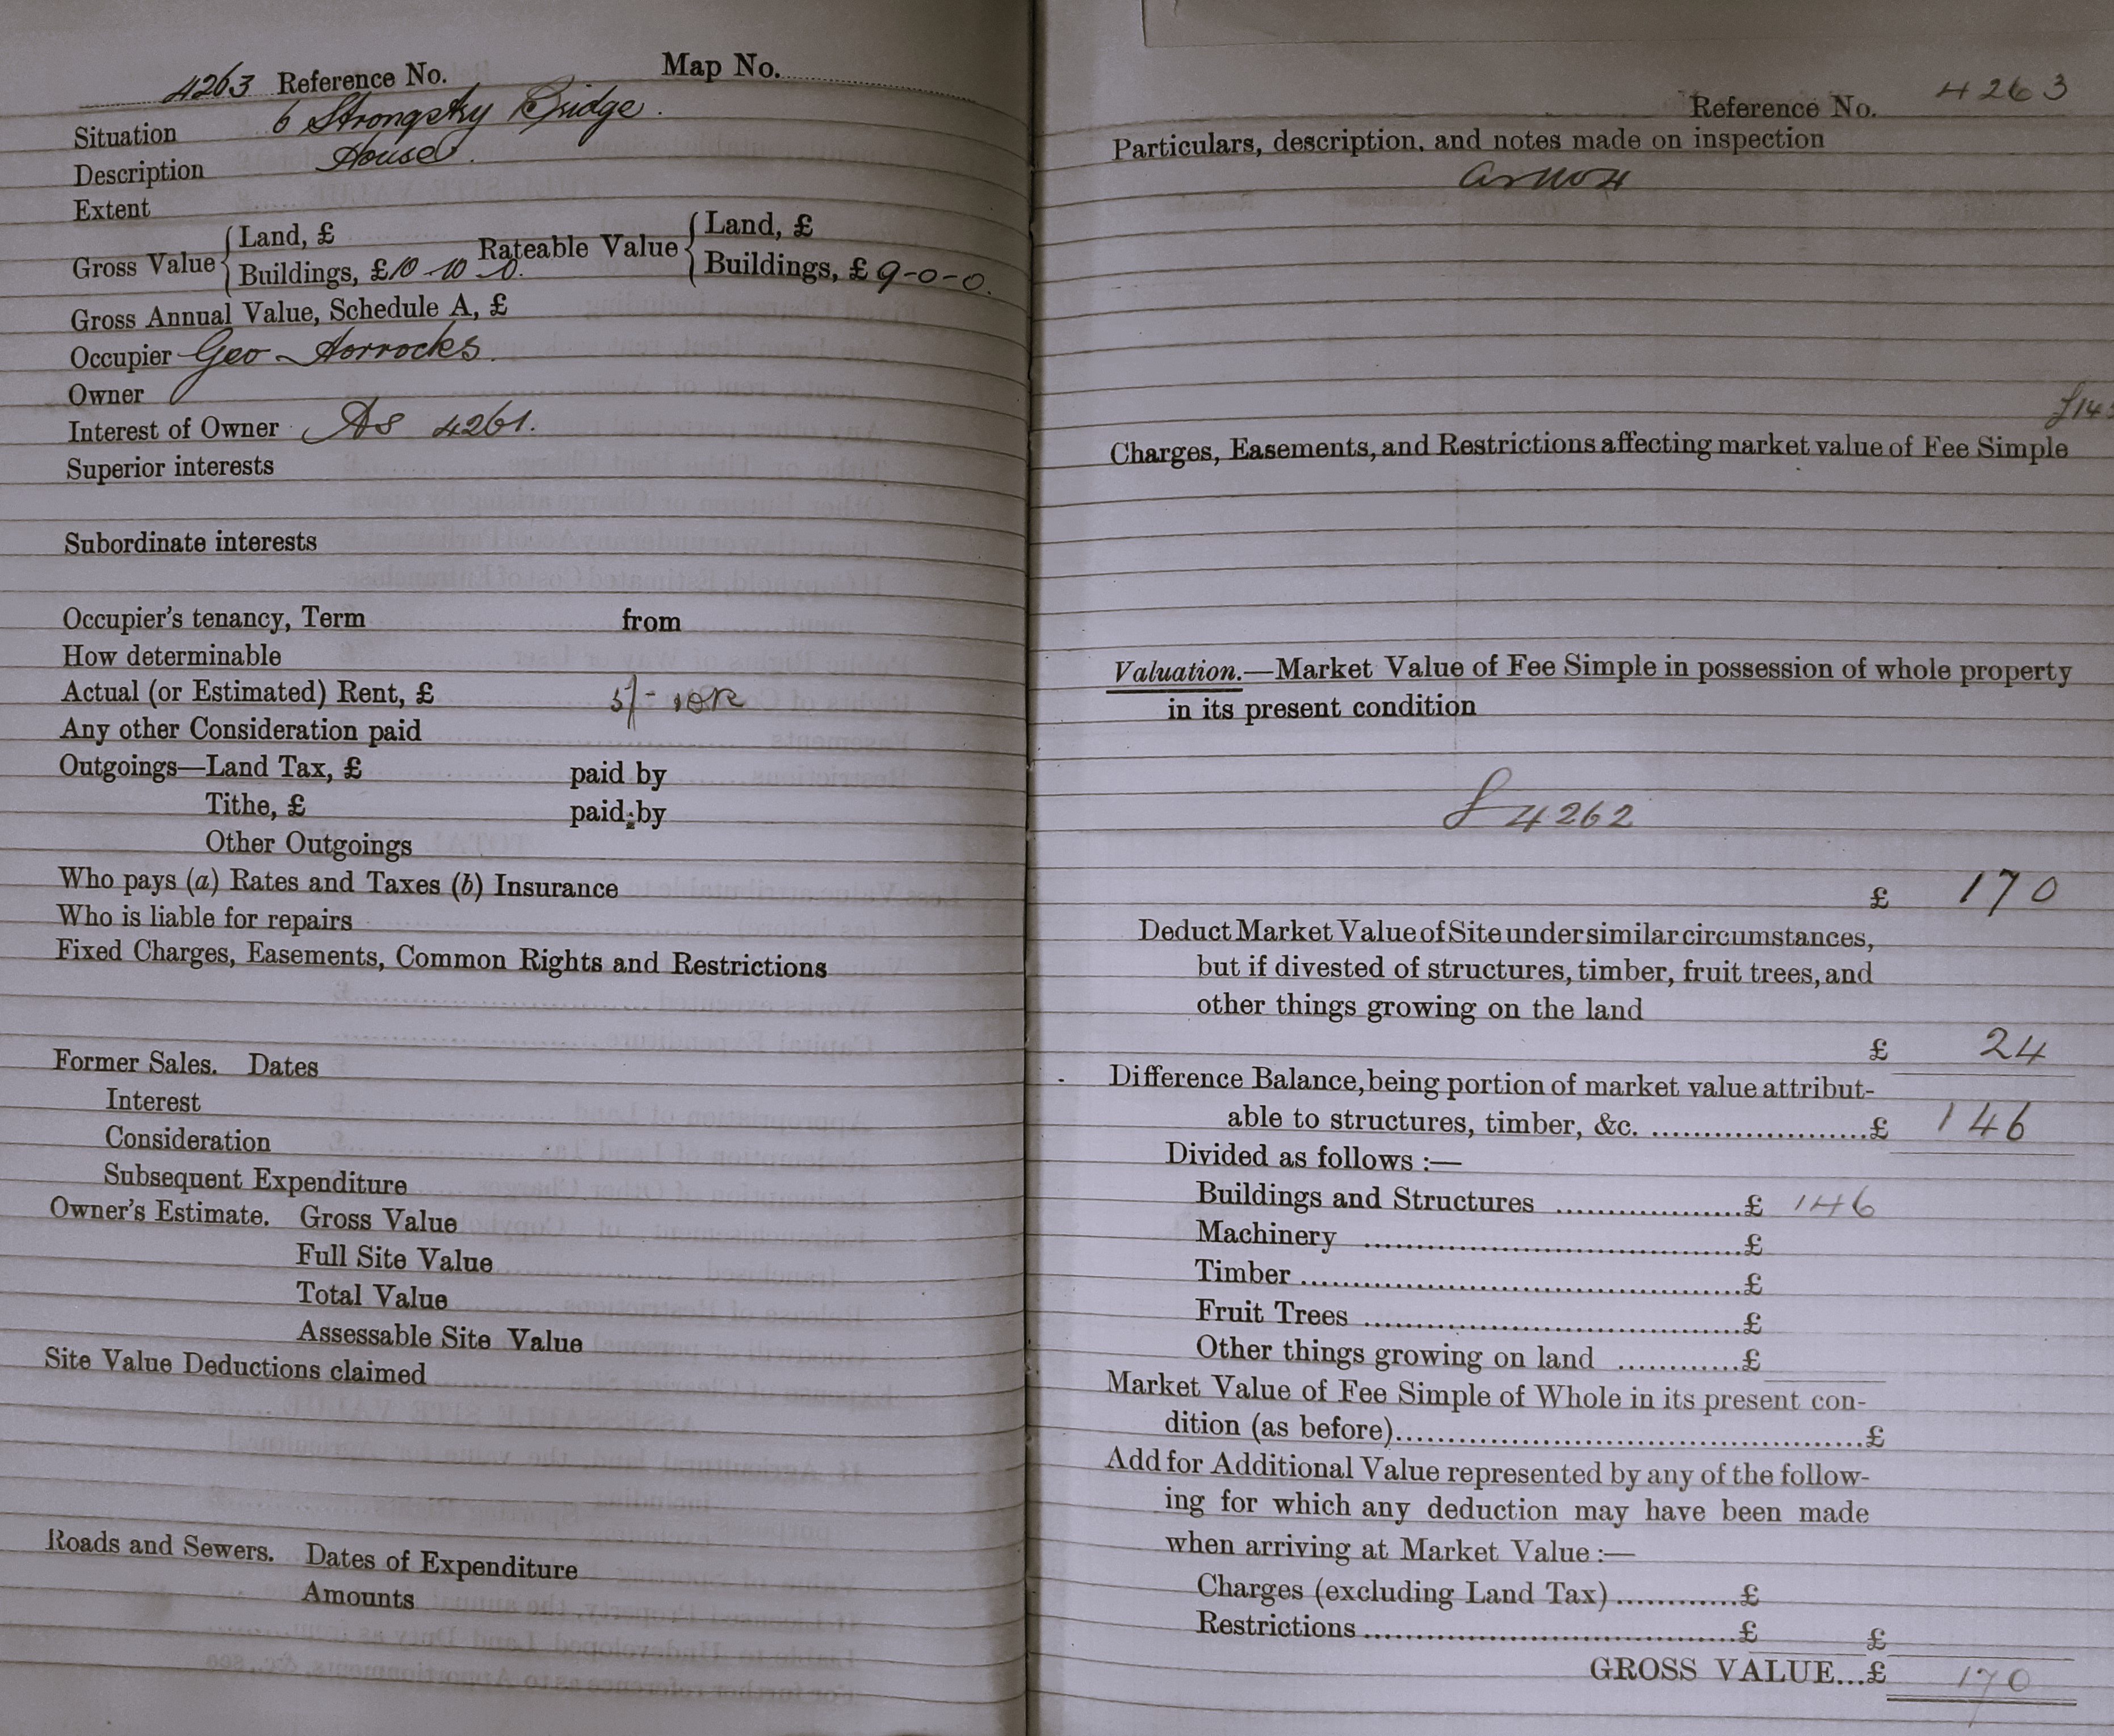 4263 Reference No. Map No.
Situation 6 Strongstry Bridge.
Description House.
Extent
Gross Value { Land, £ Rateable Value { Land, £
Buildings, £10-10-0. Buildings, £ 9-0-0.
Gross Annual Value, Schedule A, £
Occupier Geo Horrocks.
Owner
Interest of Owner As 4261.
Superior interests
Subordinate interests
Occupier's tenancy, Term from
How determinable
Actual (or Estimated) Rent, £ 5/-
Any other Consideration paid
Outgoings—Land Tax, £ paid by
Tithe, £ paid by
Other Outgoings
Who pays (a) Rates and Taxes (b) Insurance
Who is liable for repairs
Fixed Charges, Easements, Common Rights and Restrictions
Former Sales. Dates
Interest
Consideration
Subsequent Expenditure
Owner's Estimate. Gross Value
Full Site Value
Total Value
Assessable Site Value
Site Value Deductions claimed
Roads and Sewers. Dates of Expenditure
Amounts
Reference No. 4263
Particulars, description, and notes made on inspection
as No 4
Charges, Easements, and Restrictions affecting market value of Fee Simple
Valuation.—Market Value of Fee Simple in possession of whole property
in its present condition
4262
£ 170
Deduct Market Value of Site under similar circumstances,
but if divested of structures, timber, fruit trees, and
other things growing on the land
£ 24
Difference Balance, being portion of market value attribut-
able to structures, timber, &c. ......................£ 146
Divided as follows :—
Buildings and Structures ..................£ 146
Machinery .....................................£
Timber...........................................£
Fruit Trees .....................................£
Other things growing on land ............£
Market Value of Fee Simple of Whole in its present con-
dition (as before)..............................................£
Add for Additional Value represented by any of the follow-
ing for which any deduction may have been made
when arriving at Market Value :—
Charges (excluding Land Tax)............£
Restrictions.....................................£ £
GROSS VALUE...£ 170